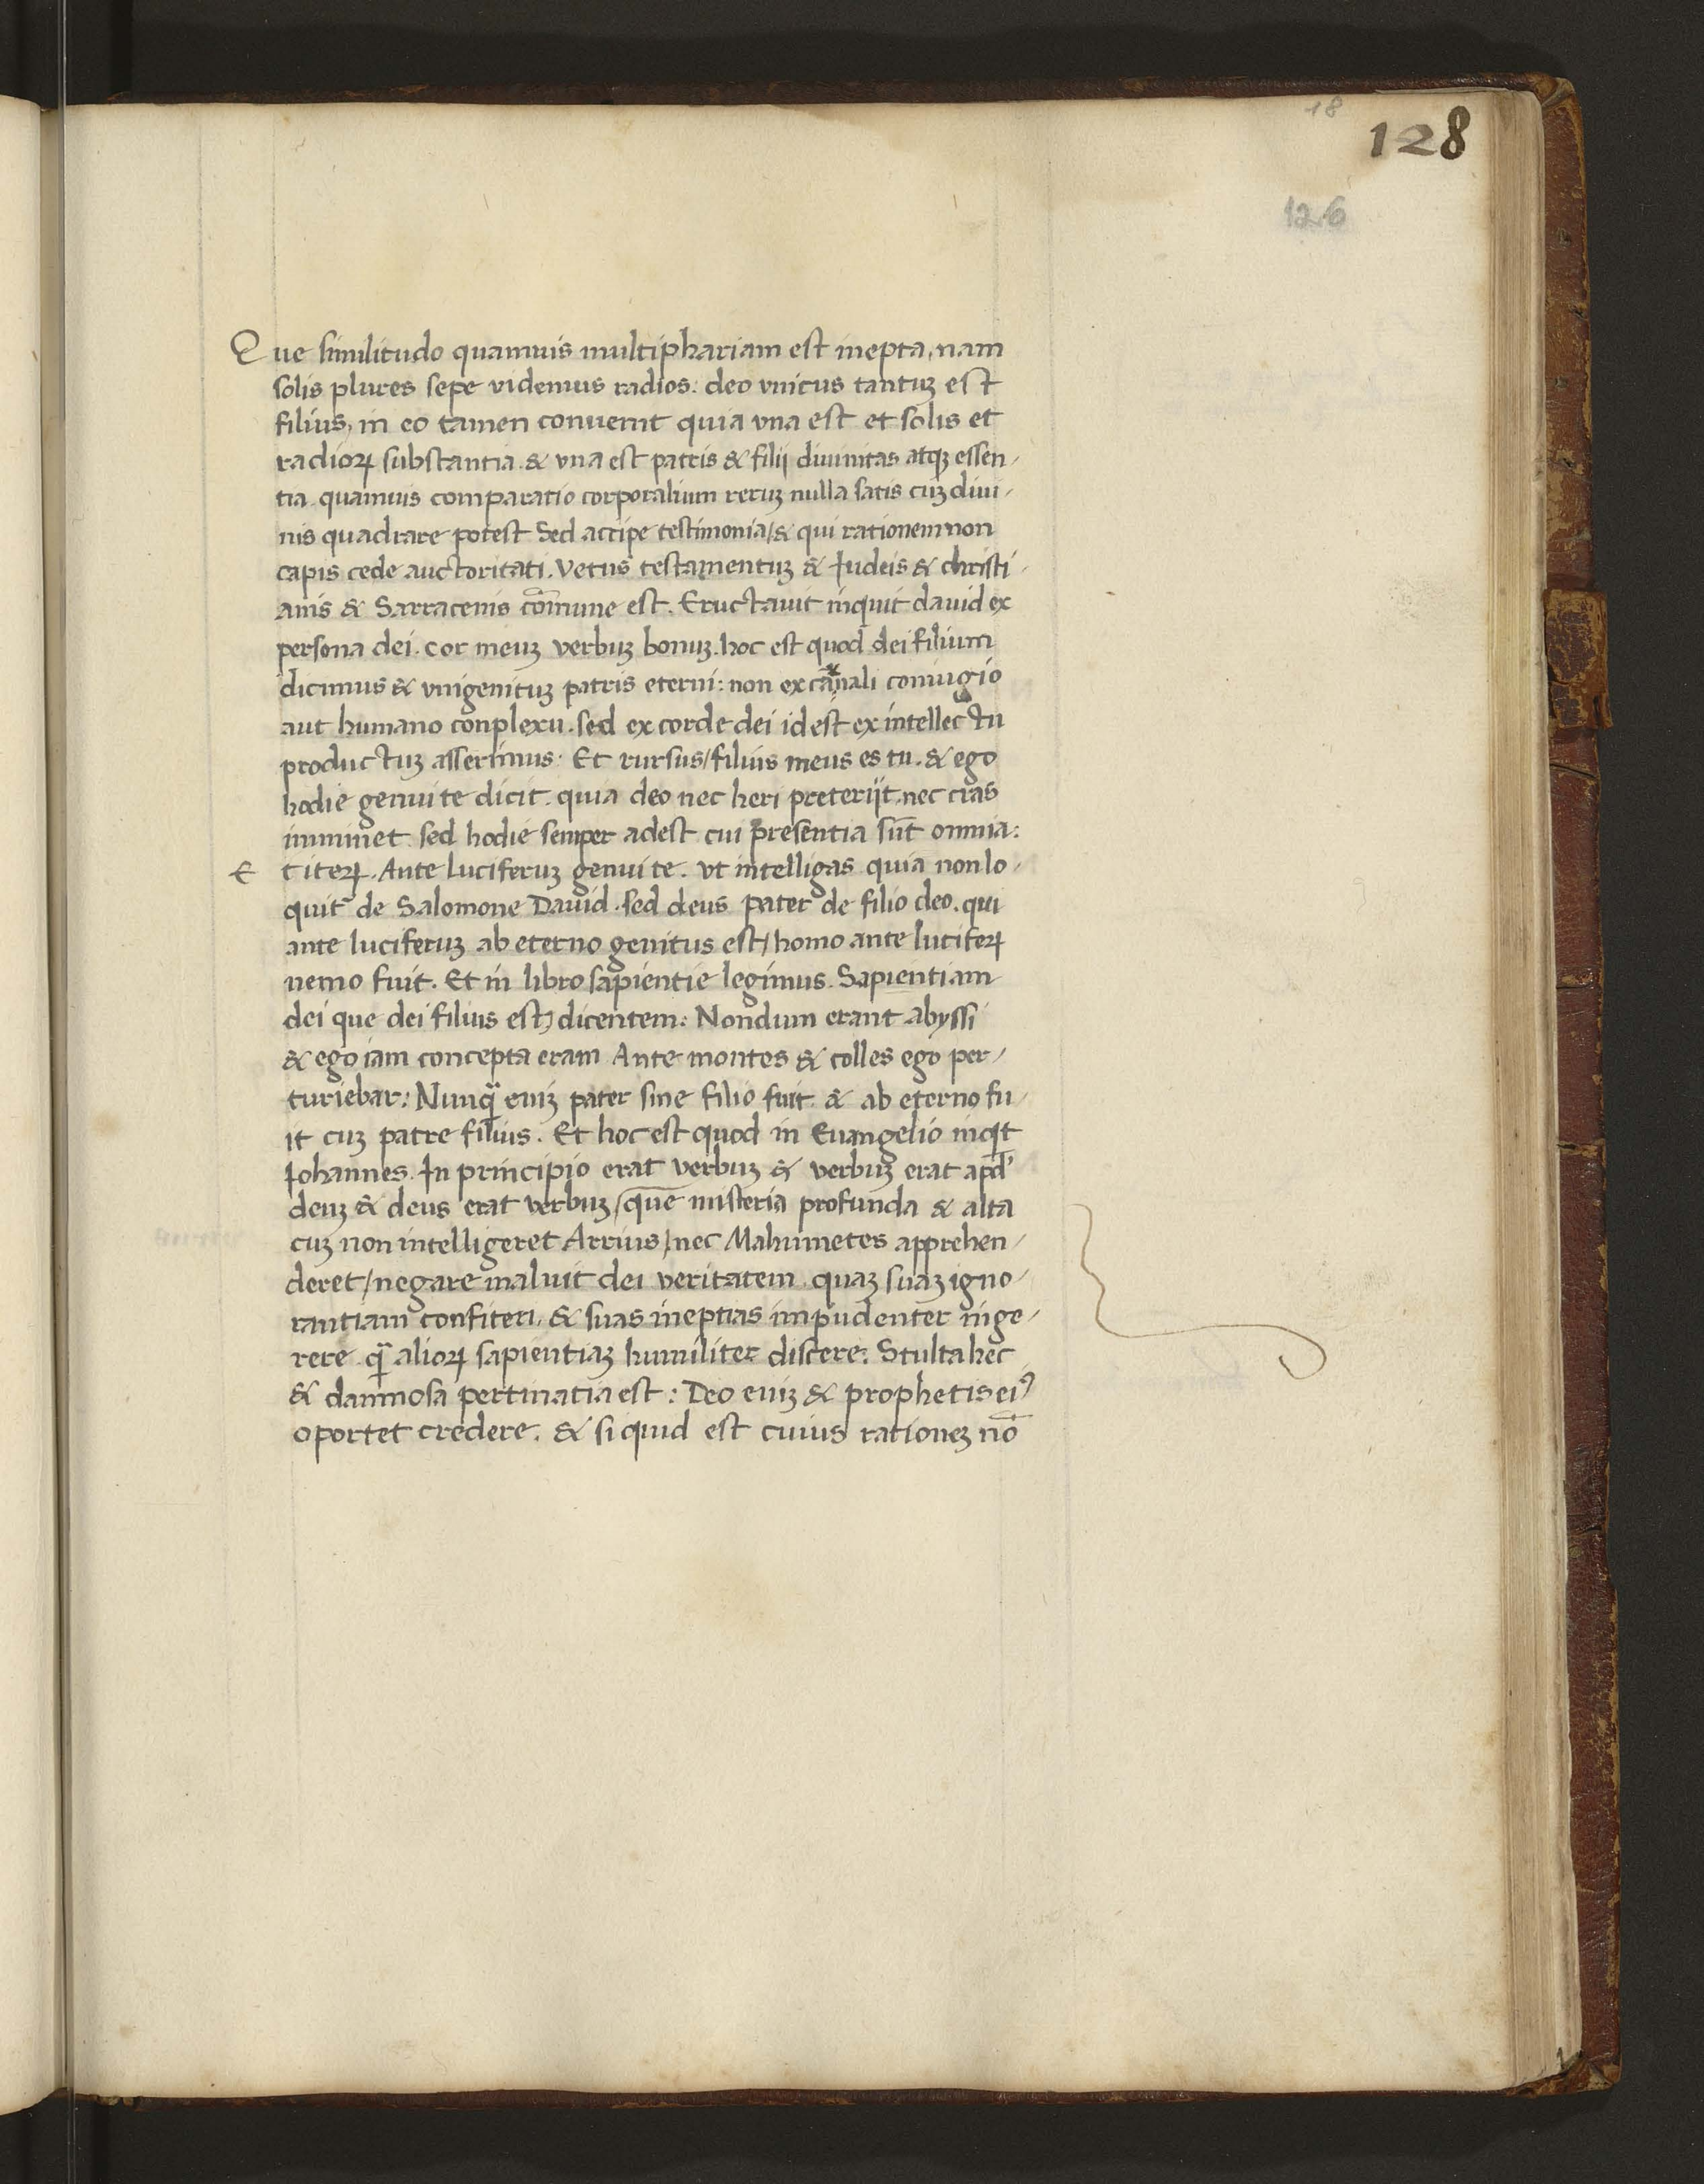 18
128
126
Que similitudo quamuis multiphariam est inepta, nam
solis plures sepe videmus radios. deo vnicus tantuꝫ est
filius, in eo tamen conuenit quia vna est et solis et
radioꝝ substantia. & vna est patris & filij diuinitas atqꝫ essen-
tia. quamuis comparatio corporalium reruꝫ nulla satis cuꝫ diui-
nis quadrare potest Sed accipe testimonia / & qui rationem non
capis cede auctoritati. Vetus testamentuꝫ & Iudeis & christi-
anis & Sarracenis cōmune est. Eructauit inquit dauid ex
persona dei. cor meuꝫ verbuꝫ bonuꝫ. hoc est quod dei filium
dicimus & vnigenituꝫ patris eterni: non ex carnali coniugio
aut humano conplexu. sed ex corde dei id est ex intellectu
productuꝫ asserimus: Et rursus / filius meus es tu. & ego
hodie genui te dicit. quia deo nec heri preterijt, nec cras
imminet. sed hodie semper adest cui presentia sūt omnia:
Et iteꝝ. Ante luciferuꝫ genui te. vt intelligas quia non lo-
quit̄ de Salomone Dauid. sed deus pater de filio deo. qui
ante luciferuꝫ ab eterno genitus est / homo ante lucifeꝝ
nemo fuit. Et in libro sapientie legimus. Sapientiam
dei que dei filius est / dicentem: Nondum erant abyssi
& ego iam concepta eram Ante montes & colles ego per-
turiebar: Nunꝙ̄ eniꝫ pater sine filio fuit. & ab eterno fu-
it cuꝫ patre filius. Et hoc est quod in Euangelio inqͥt
Iohannes. In principio erat verbuꝫ & verbuꝫ erat apd'
deuꝫ & deus erat verbuꝫ / que misteria profunda & alta
cuꝫ non intelligeret Arrius / nec Mahumetes apprehen-
deret / negare maluit dei veritatem quaꝫ suaꝫ igno-
rantiam confiteri. & suas ineptias impudenter inge-
rere ꝙ̄ alioꝝ sapientiaꝫ humiliter discere: Stulta hec
& damnosa pertinatia est: Deo eniꝫ & prophetis eiꝰ
oportet credere. & si quid est cuius rationeꝫ nō